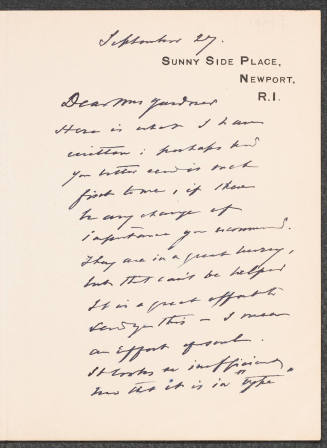 September 27.
SUNNY SIDE PLACE,
NEWPORT,
R.I.
Dear Mrs Gardner
Here is what I have
written; perhaps had
you better send is back
first to me, if there
be any change of
importance you recommend.
They are in a great hurry,
but that can't be helped
It is a great effort to
send you this – I mean
an effort of soul.
It looks so inefficient
now that it is in "type"